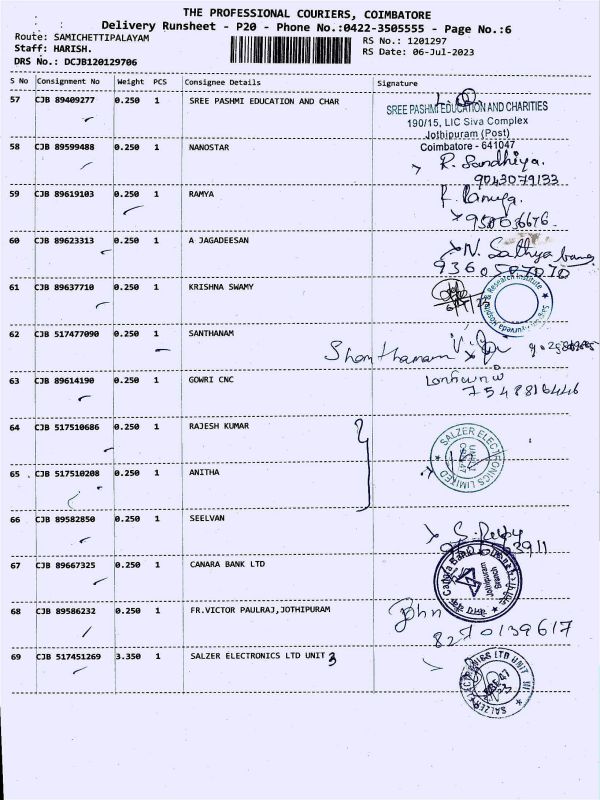 THE PROFESSIONAL COURIERS, COIMBATORE
Delivery Runsheet - P20 - Phone No.:0422-3505555 - Page No.:6
Route: SAMICHETTIPALAYAM
RS No.: 1201297
Staff: HARISH.
RS Date: 06-Jul-2023
DRS No.: DCJB120129706
S No Consignment No Weight PCS Consignee Details Signature
57 CJB 89409277 0.250 1 SREE PASHMI EDUCATION AND CHAR
SREE PASHMI EDUCATION AND CHARITIES
190/15, LIC Siva Complex
Jothipuram (Post)
Coimbatore - 641047
58 CJB 89599488 0.250 1 NANOSTAR
R. Sandhiya.
9043079133
59 CJB 89619103 0.250 1 RAMYA
60 CJB 89623313 0.250 1 A JAGADEESAN
N. Sathya
61 CJB 89637710 0.250 1 KRISHNA SWAMY
62 CJB 517477090 0.250 1 SANTHANAM
Shanthanam
63 CJB 89614190 0.250 1 GOWRI CNC
7548816446
64 CJB 517510686 0.250 1 RAJESH KUMAR
SALZER ELECTRONICS LIMITED
65 CJB 517510208 0.250 1 ANITHA
66 CJB 89582850 0.250 1 SEELVAN
67 CJB 89667325 0.250 1 CANARA BANK LTD
Canara Bank
Jothipuram
Branch
68 CJB 89586232 0.250 1 FR.VICTOR PAULRAJ,JOTHIPURAM
John
8270139617
69 CJB 517451269 3.350 1 SALZER ELECTRONICS LTD UNIT 3
SALZER ELECTRONICS LTD UNIT III